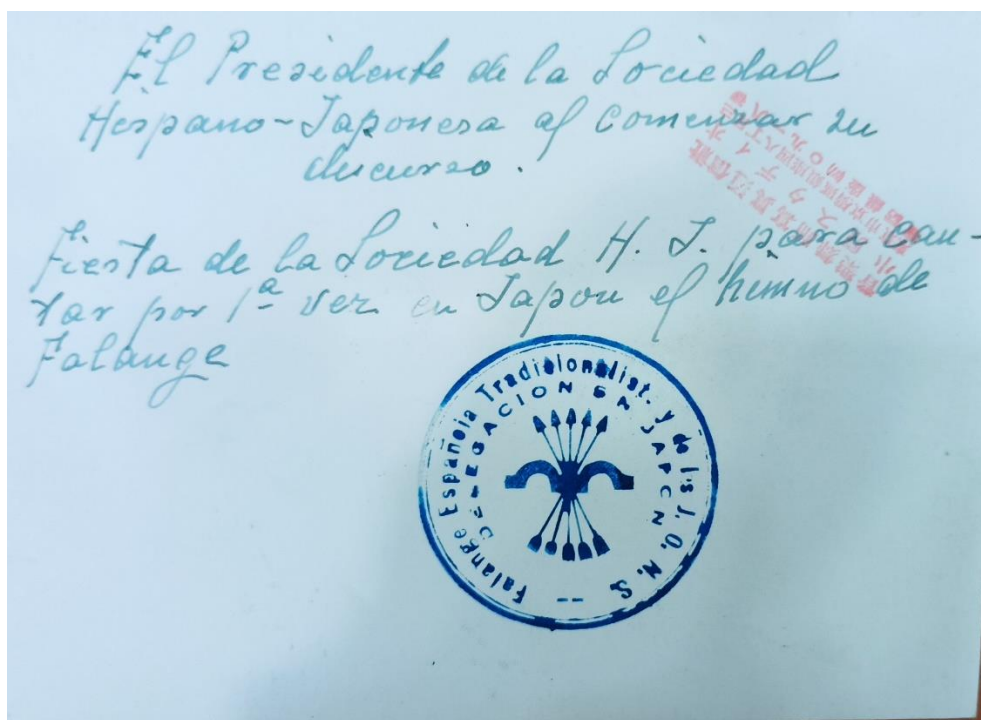 El Presidente de la Sociedad
Hispano-Japonesa al comenzar su
discurso.
Fiesta de la Sociedad H. J. para can-
tar por 1ª vez en Japon el himno de
Falange
Falange Española Tradicionalist. y de las J. O. N. S.
DELEGACION EN JAPON